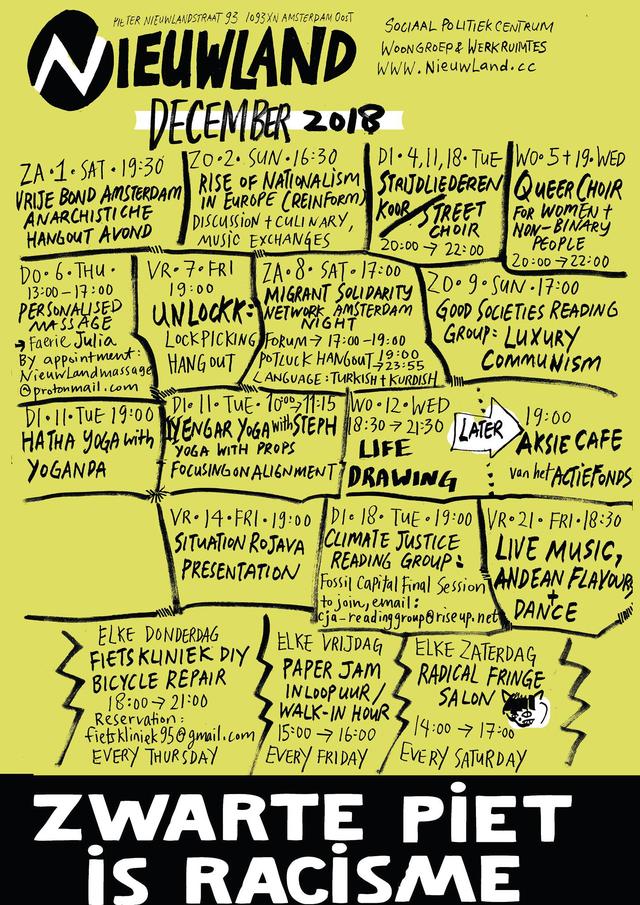 PIETER NIEUWLANDSTRAAT 93 1093XN AMSTERDAM OOST
NIEUWLAND
SOCIAAL POLITIEK CENTRUM
WOONGROEP & WERKRUIMTES
WWW.NIEUWLAND.CC
DECEMBER 2018
ZA • 1 • SAT • 19:30
VRIJE BOND AMSTERDAM
ANARCHISTICHE
HANGOUT AVOND
ZO • 2 • SUN • 16:30
RISE OF NATIONALISM
IN EUROPE (REINFORM)
DISCUSSION + CULINARY,
MUSIC EXCHANGES
DI • 4, 11, 18 • TUE
STRIJDLIEDEREN
KOOR / STREET
CHOIR
20:00 → 22:00
WO • 5 + 19 • WED
QUEER CHOIR
FOR WOMEN +
NON-BINARY
PEOPLE
20:00 → 22:00
DO • 6 • THU •
13:00 - 17:00
PERSONALISED
MASSAGE
→ Faerie Julia
By appointment:
Nieuwlandmassage
@protonmail.com
VR • 7 • FRI
19:00
UNLOCKK:
LOCKPICKING
HANGOUT
ZA • 8 • SAT • 17:00
MIGRANT SOLIDARITY
NETWORK AMSTERDAM
NIGHT
FORUM → 17:00 - 19:00
POTLUCK HANGOUT 19:00
→ 23:55
LANGUAGE: TURKISH + KURDISH
ZO • 9 • SUN • 17:00
GOOD SOCIETIES READING
GROUP: LUXURY
COMMUNISM
DI • 11 • TUE 19:00
HATHA YOGA with
YOGANDA
DI • 11 • TUE • 10:00 → 11:15
IYENGAR YOGA with STEPH
YOGA WITH PROPS
FOCUSING ON ALIGNMENT
WO • 12 • WED
18:30 → 21:30
LIFE
DRAWING
LATER
19:00
AKSIE CAFE
van het ACTIEFONDS
VR • 14 • FRI • 19:00
SITUATION ROJAVA
PRESENTATION
DI • 18 • TUE • 19:00
CLIMATE JUSTICE
READING GROUP:
Fossil Capital Final Session
to join, email:
cja-readinggroup@riseup.net
VR • 21 • FRI • 18:30
LIVE MUSIC,
ANDEAN FLAVOURS
+
DANCE
ELKE DONDERDAG
FIETSKLINIEK DIY
BICYCLE REPAIR
18:00 → 21:00
Reservation:
fietskliniek95@gmail.com
EVERY THURSDAY
ELKE VRIJDAG
PAPER JAM
INLOOPUUR /
WALK-IN HOUR
15:00 → 16:00
EVERY FRIDAY
ELKE ZATERDAG
RADICAL FRINGE
SALON
14:00 → 17:00
EVERY SATURDAY
ZWARTE PIET
IS RACISME